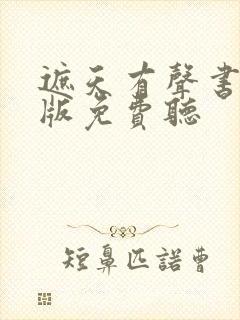 遮天有聲書
版免費聽
短鼻匹諾曹